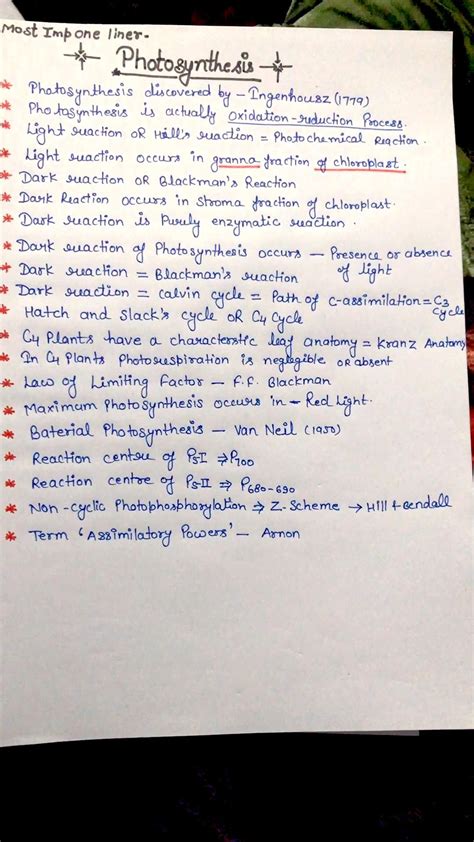 Most Imp one liner-
Photosynthesis
* Photosynthesis discovered by - Ingenhousz (1779)
* Photosynthesis is actually Oxidation-reduction Process.
* Light reaction OR Hill's reaction = Photochemical Reaction.
* Light reaction occurs in granna fraction of chloroplast.
* Dark reaction OR Blackman's Reaction
* Dark Reaction occurs in Stroma fraction of chloroplast.
* Dark reaction is Purely enzymatic reaction.
* Dark reaction of Photosynthesis occurs - Presence or absence
of light
* Dark reaction = Blackman's reaction
* Dark reaction = Calvin cycle = Path of C-assimilation = C3
Cycle
* Hatch and Slack's cycle OR C4 Cycle
* C4 Plants have a characterstic leaf anatomy = Kranz Anatomy
* In C4 Plants Photorespiration is neglegible OR absent
* Law of Limiting Factor - F.F. Blackman
* Maximum Photosynthesis occurs in - Red Light.
* Baterial Photosynthesis - Van Neil (1950)
* Reaction centre of PS-I ⇒ P700
* Reaction centre of PS-II ⇒ P680-690
* Non-cyclic Photophosphorylation ⇒ Z-Scheme → Hill & Bendall
* Term 'Assimilatory Powers' - Arnon